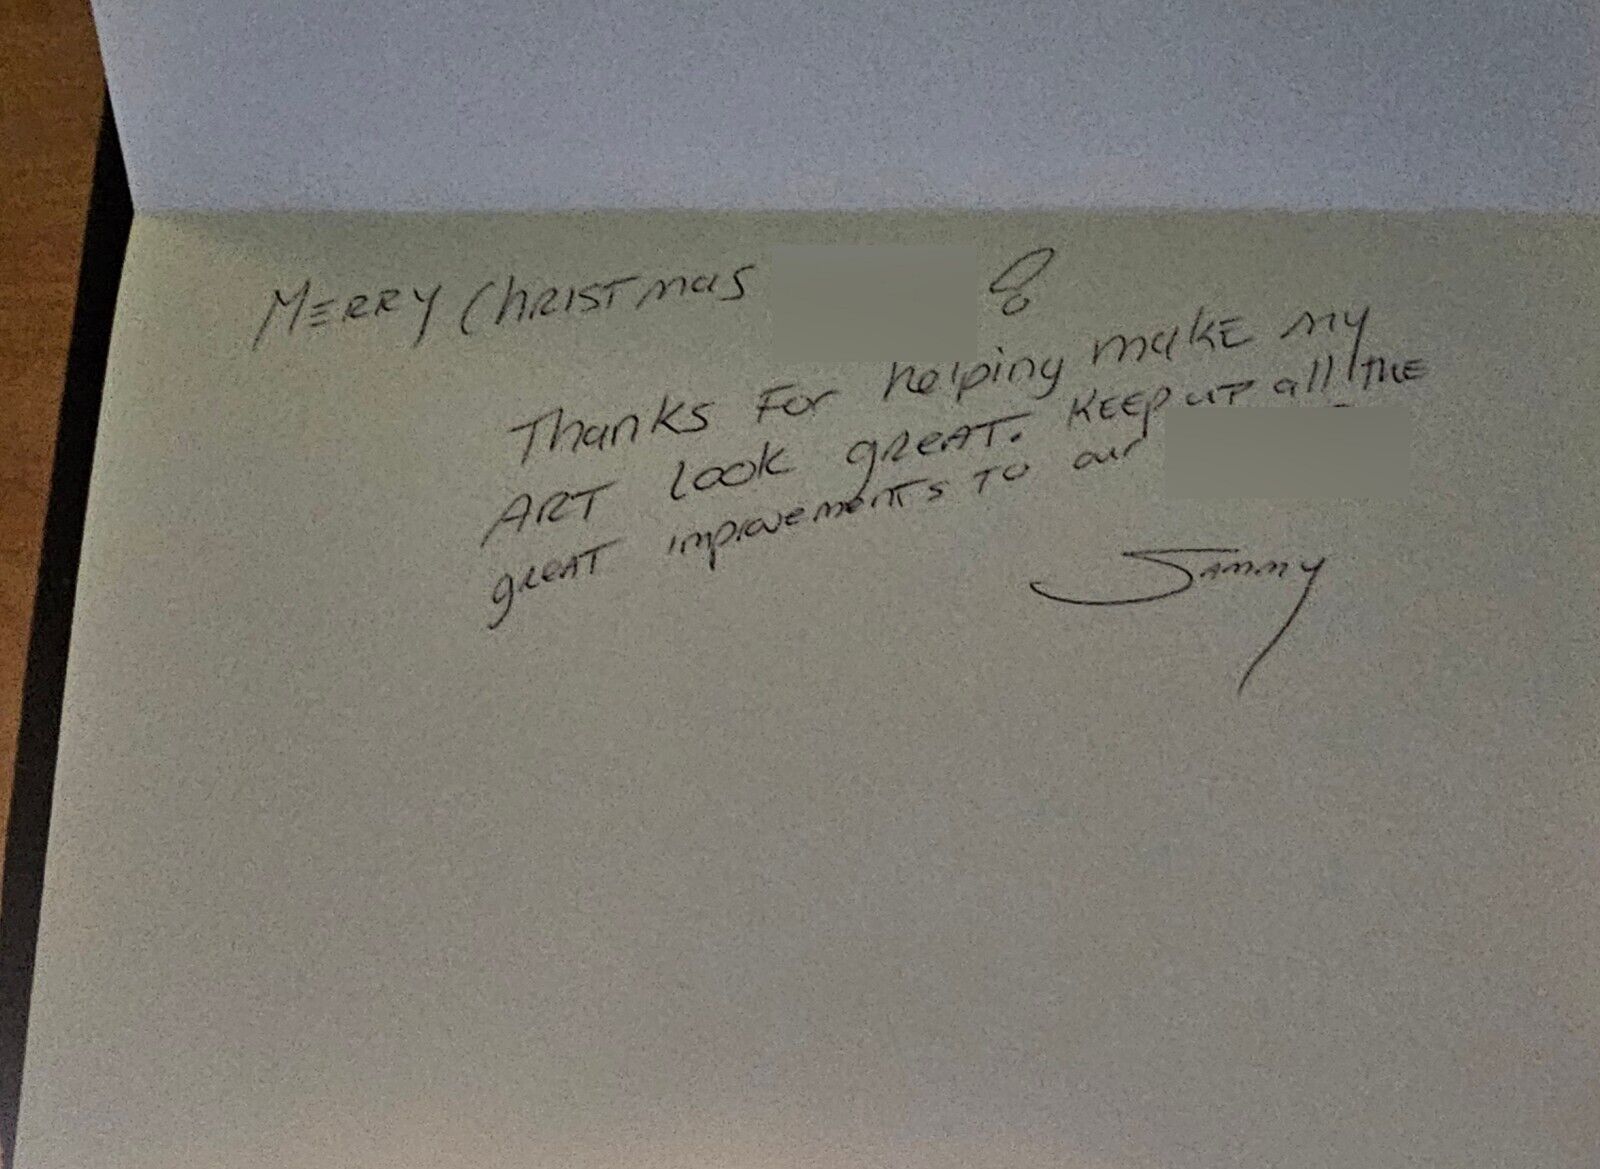 MERRY Christmas !
Thanks For helping make my
ART Look great. KEEP UP all THE
great improvements TO our
Sammy